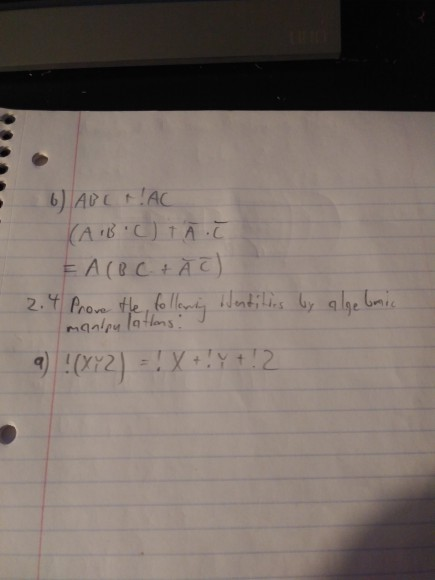 b) ABC + !AC
(A·B·C) + Ā·C̄
= A(BC + Ā C̄)
2.4 Prove the following identities by algebraic
manipulations:
a) !(XYZ) = !X + !Y + !Z